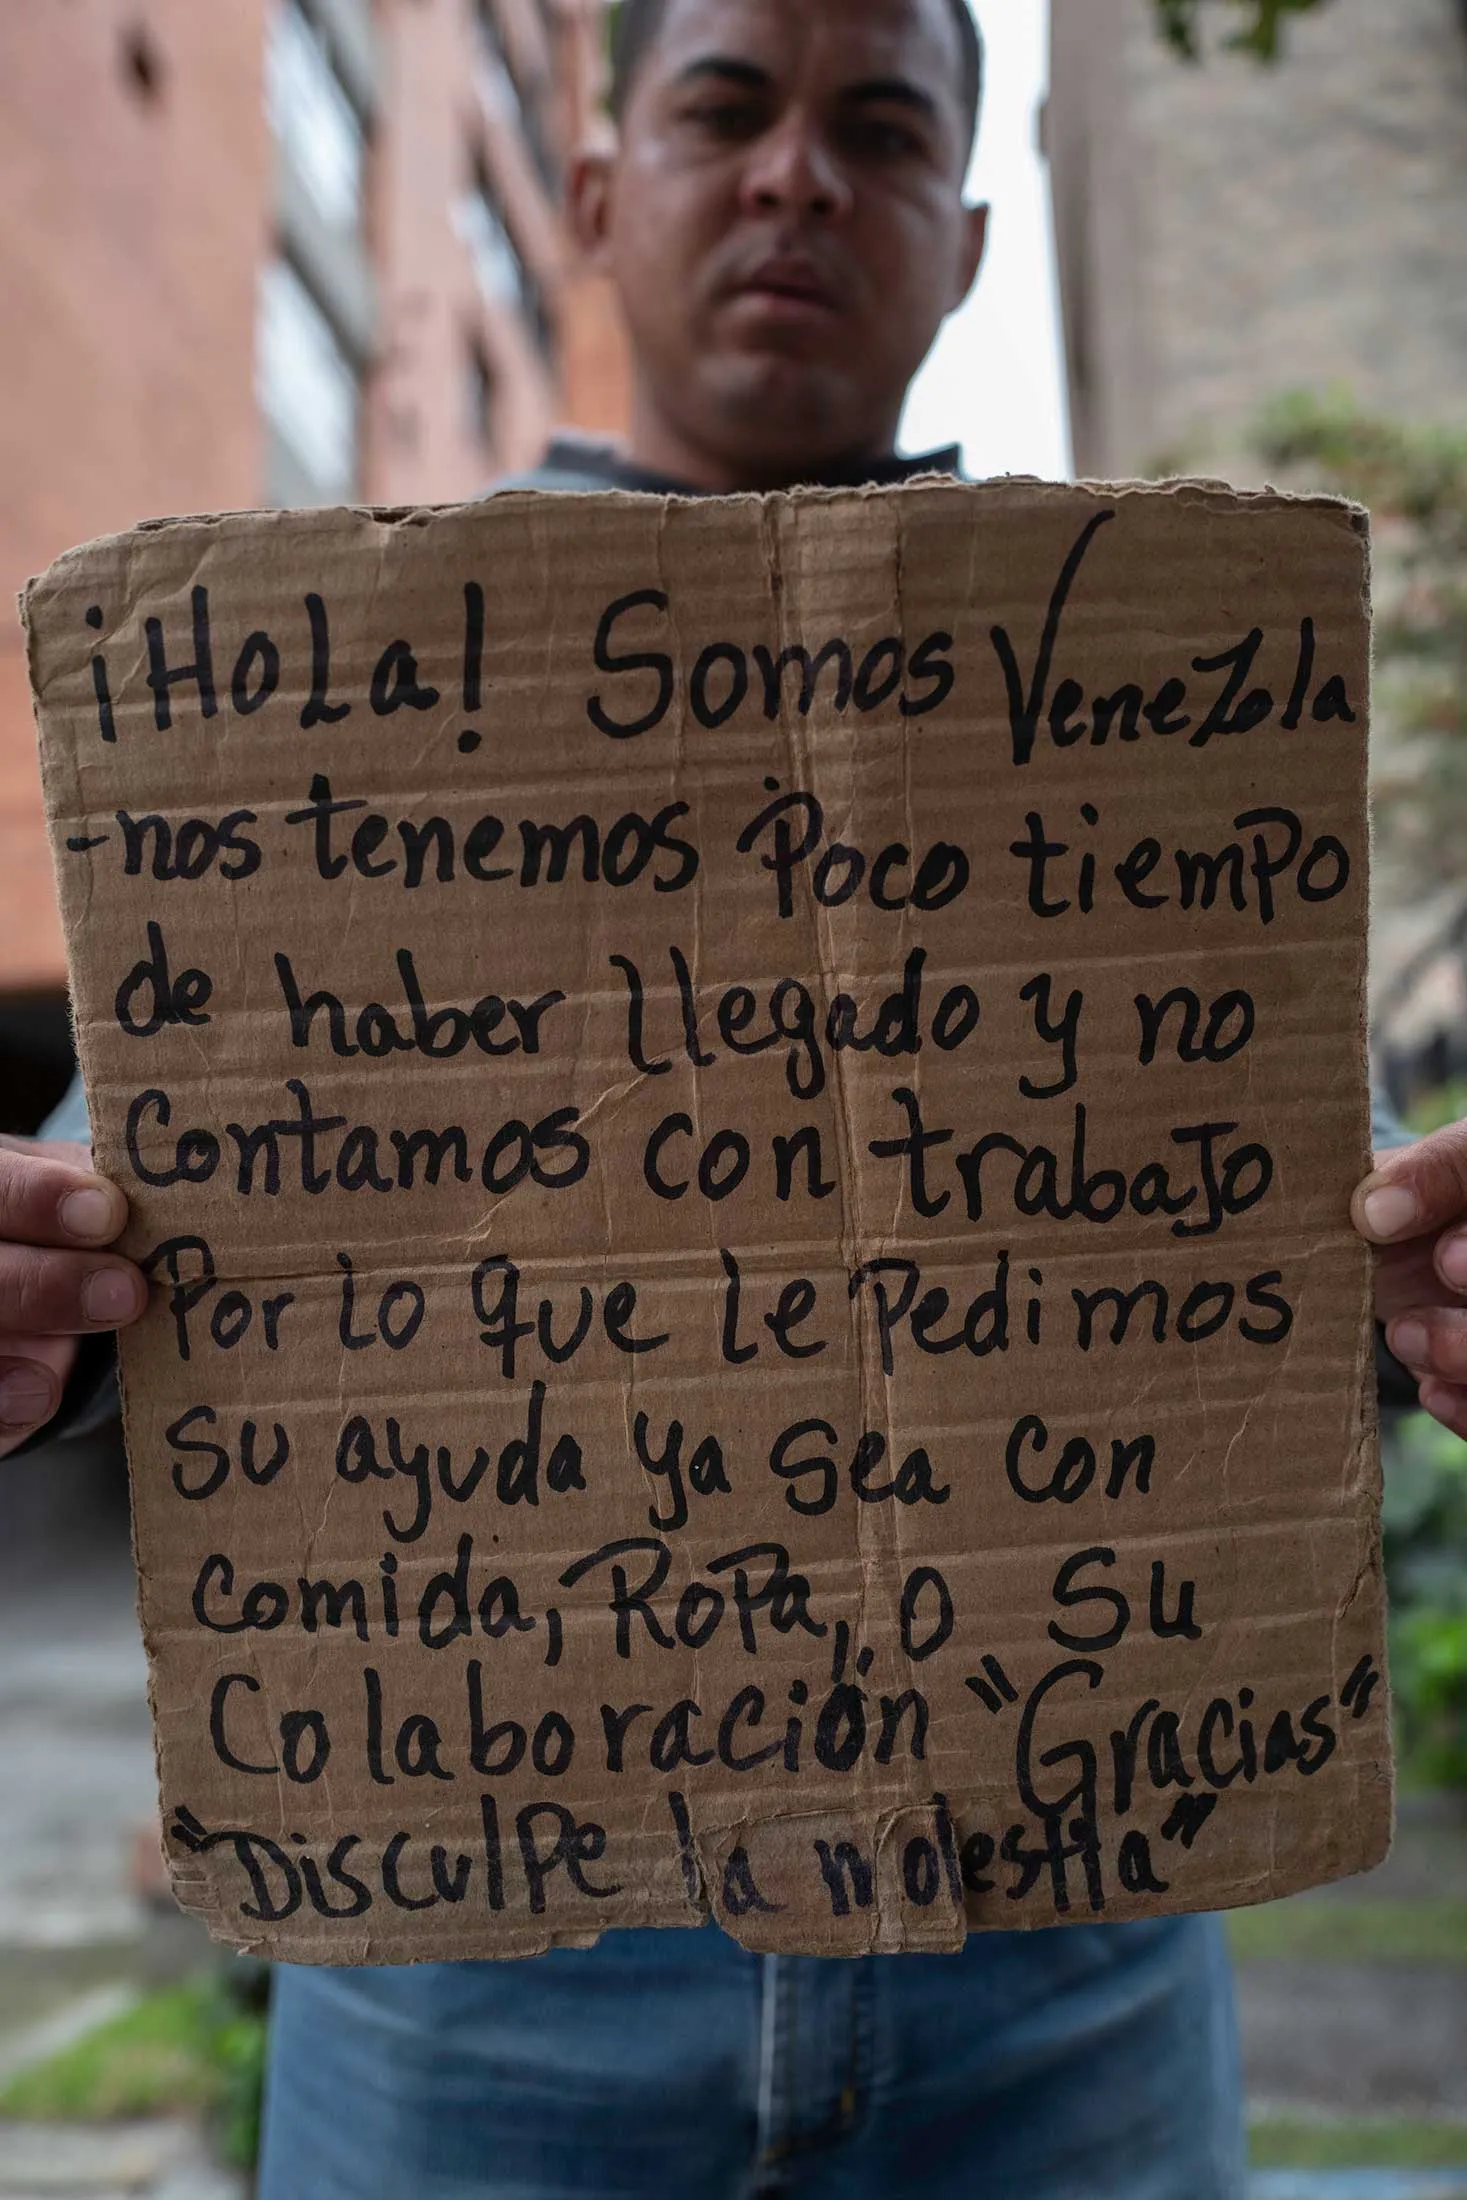 ¡HoLa! Somos VeneZola
-nos tenemos Poco tiemPo
de haber llegado y no
Contamos con trabaJo
Por lo que le Pedimos
su ayuda ya sea con
comida, RoPa, o Su
Colaboración "Gracias"
"DiscuLPe la molestia"